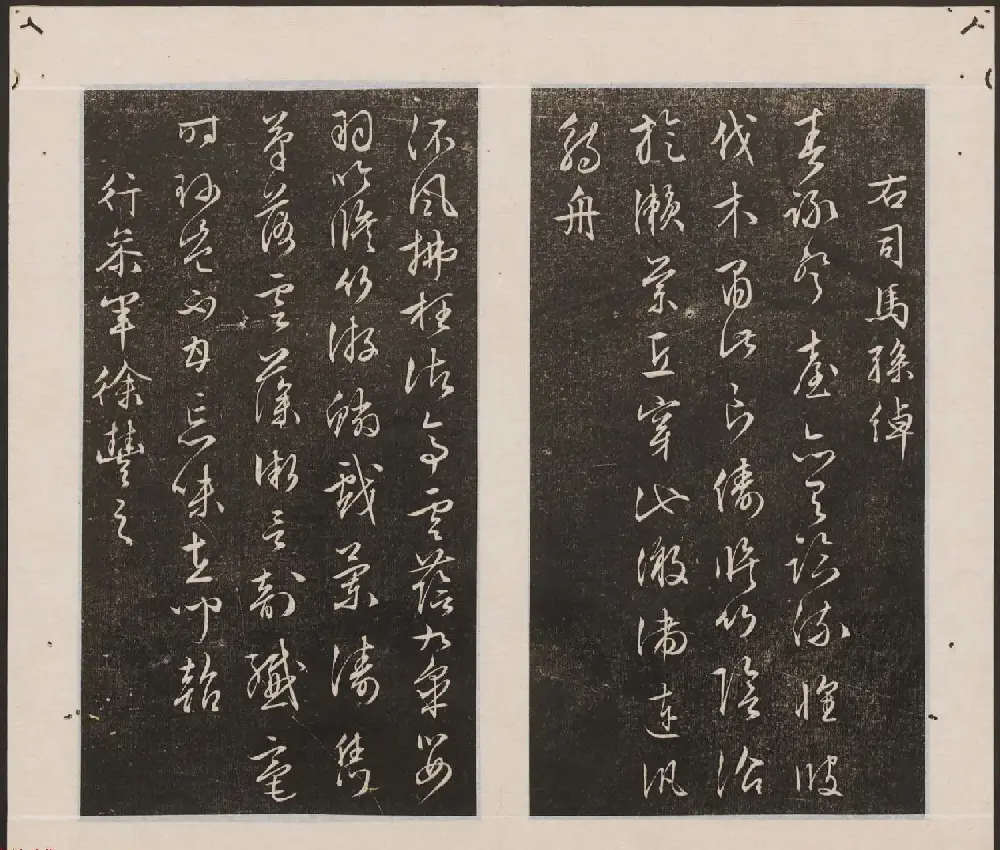 右司馬孫綽
春詠登臺亦有臨流懷彼
伐木肅此良儔脩竹蔭沼
旋瀨縈丘穿池激湍連汎
觴舟
流風拂枉渚亭雲蔭九皋鶯
羽吟脩竹游鱗戲瀾濤攜
筆落雲藻微言剖纖毫
時珍豈不甘忘味在聞韶
行參軍徐豐之